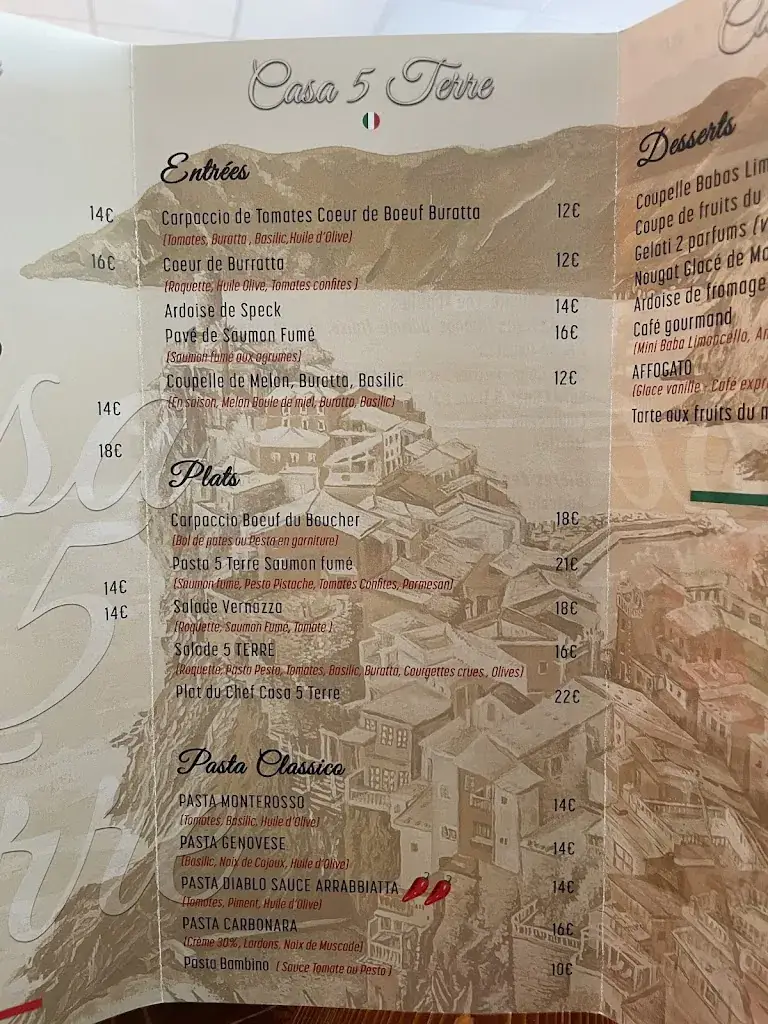 Casa 5 Terre
Entrées
Carpaccio de Tomates Coeur de Boeuf Buratta 12€
(Tomates, Buratta , Basilic,Huile d'Olive)
Coeur de Burratta 12€
(Roquette, Huile Olive, Tomates confites )
Ardoise de Speck 14€
Pavé de Saumon Fumé 16€
(Saumon fumé aux agrumes)
Coupelle de Melon, Buratta, Basilic 12€
(En saison, Melon Boule de miel, Buratta, Basilic)
Plats
Carpaccio Boeuf du Boucher 18€
(Bol de pates au Pesto en garniture)
Pasta 5 Terre Saumon fumé 21€
(Saumon fumé, Pesto Pistache, Tomates Confites, Parmesan)
Salade Vernazza 18€
(Roquette, Saumon Fumé, Tomate )
Salade 5 TERRE 16€
(Roquette, Pasta Pesto, Tomates, Basilic, Buratta, Courgettes crues , Olives)
Plat du Chef Casa 5 Terre 22€
Pasta Classico
PASTA MONTEROSSO 14€
(Tomates, Basilic, Huile d'Olive)
PASTA GENOVESE 14€
(Basilic, Noix de Cajoux, Huile d'Olive)
PASTA DIABLO SAUCE ARRABBIATTA 14€
(Tomates, Piment, Huile d'Olive)
PASTA CARBONARA 16€
(Crème 30%, Lardons, Noix de Muscade)
Pasta Bambino ( Sauce Tomate ou Pesto ) 10€
14€
16€
14€
18€
14€
14€
Desserts
Coupelle Babas
Coupe de fruits du
Gelati 2 parfums
Nougat Glacé de
Ardoise de fromage
Café gourmand
(Mini Baba Limoncello,
AFFOGATO
(Glace vanille - Café
Tarte aux fruits du